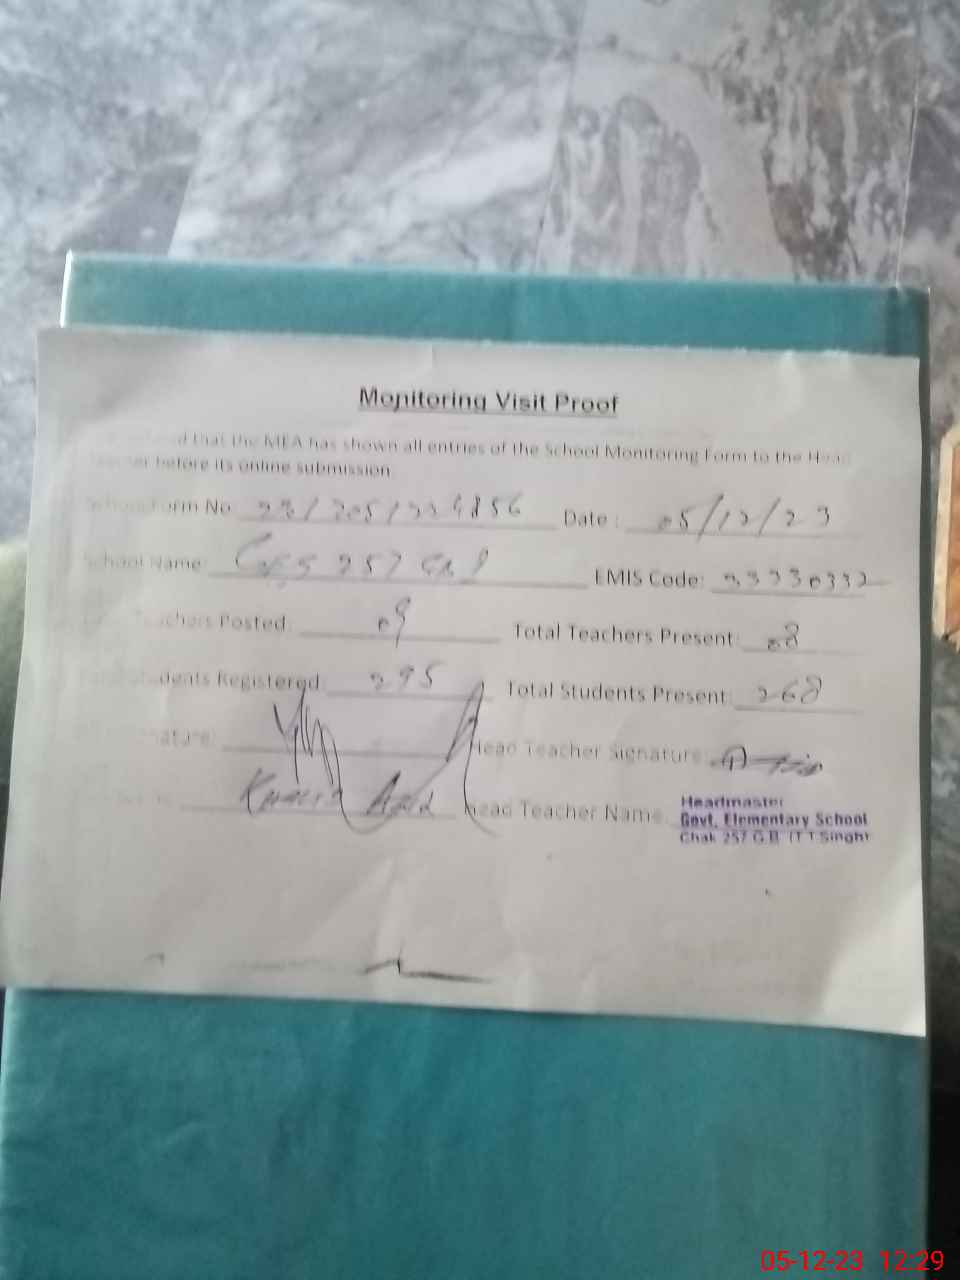 Monitoring Visit Proof
that the MEA has shown all entries of the School Monitoring Form to the Head
before its online submission.
School Form No: Date: 05/12/23
School Name: GES 257 GB EMIS Code:
Teachers Posted: 09 Total Teachers Present: 08
Students Registered: 295 Total Students Present: 268
Head Teacher Signature:
Head Teacher Name:
Headmaster
Govt. Elementary School
Chak 257 G.B. (T.T.Singh)
05-12-23 12:29